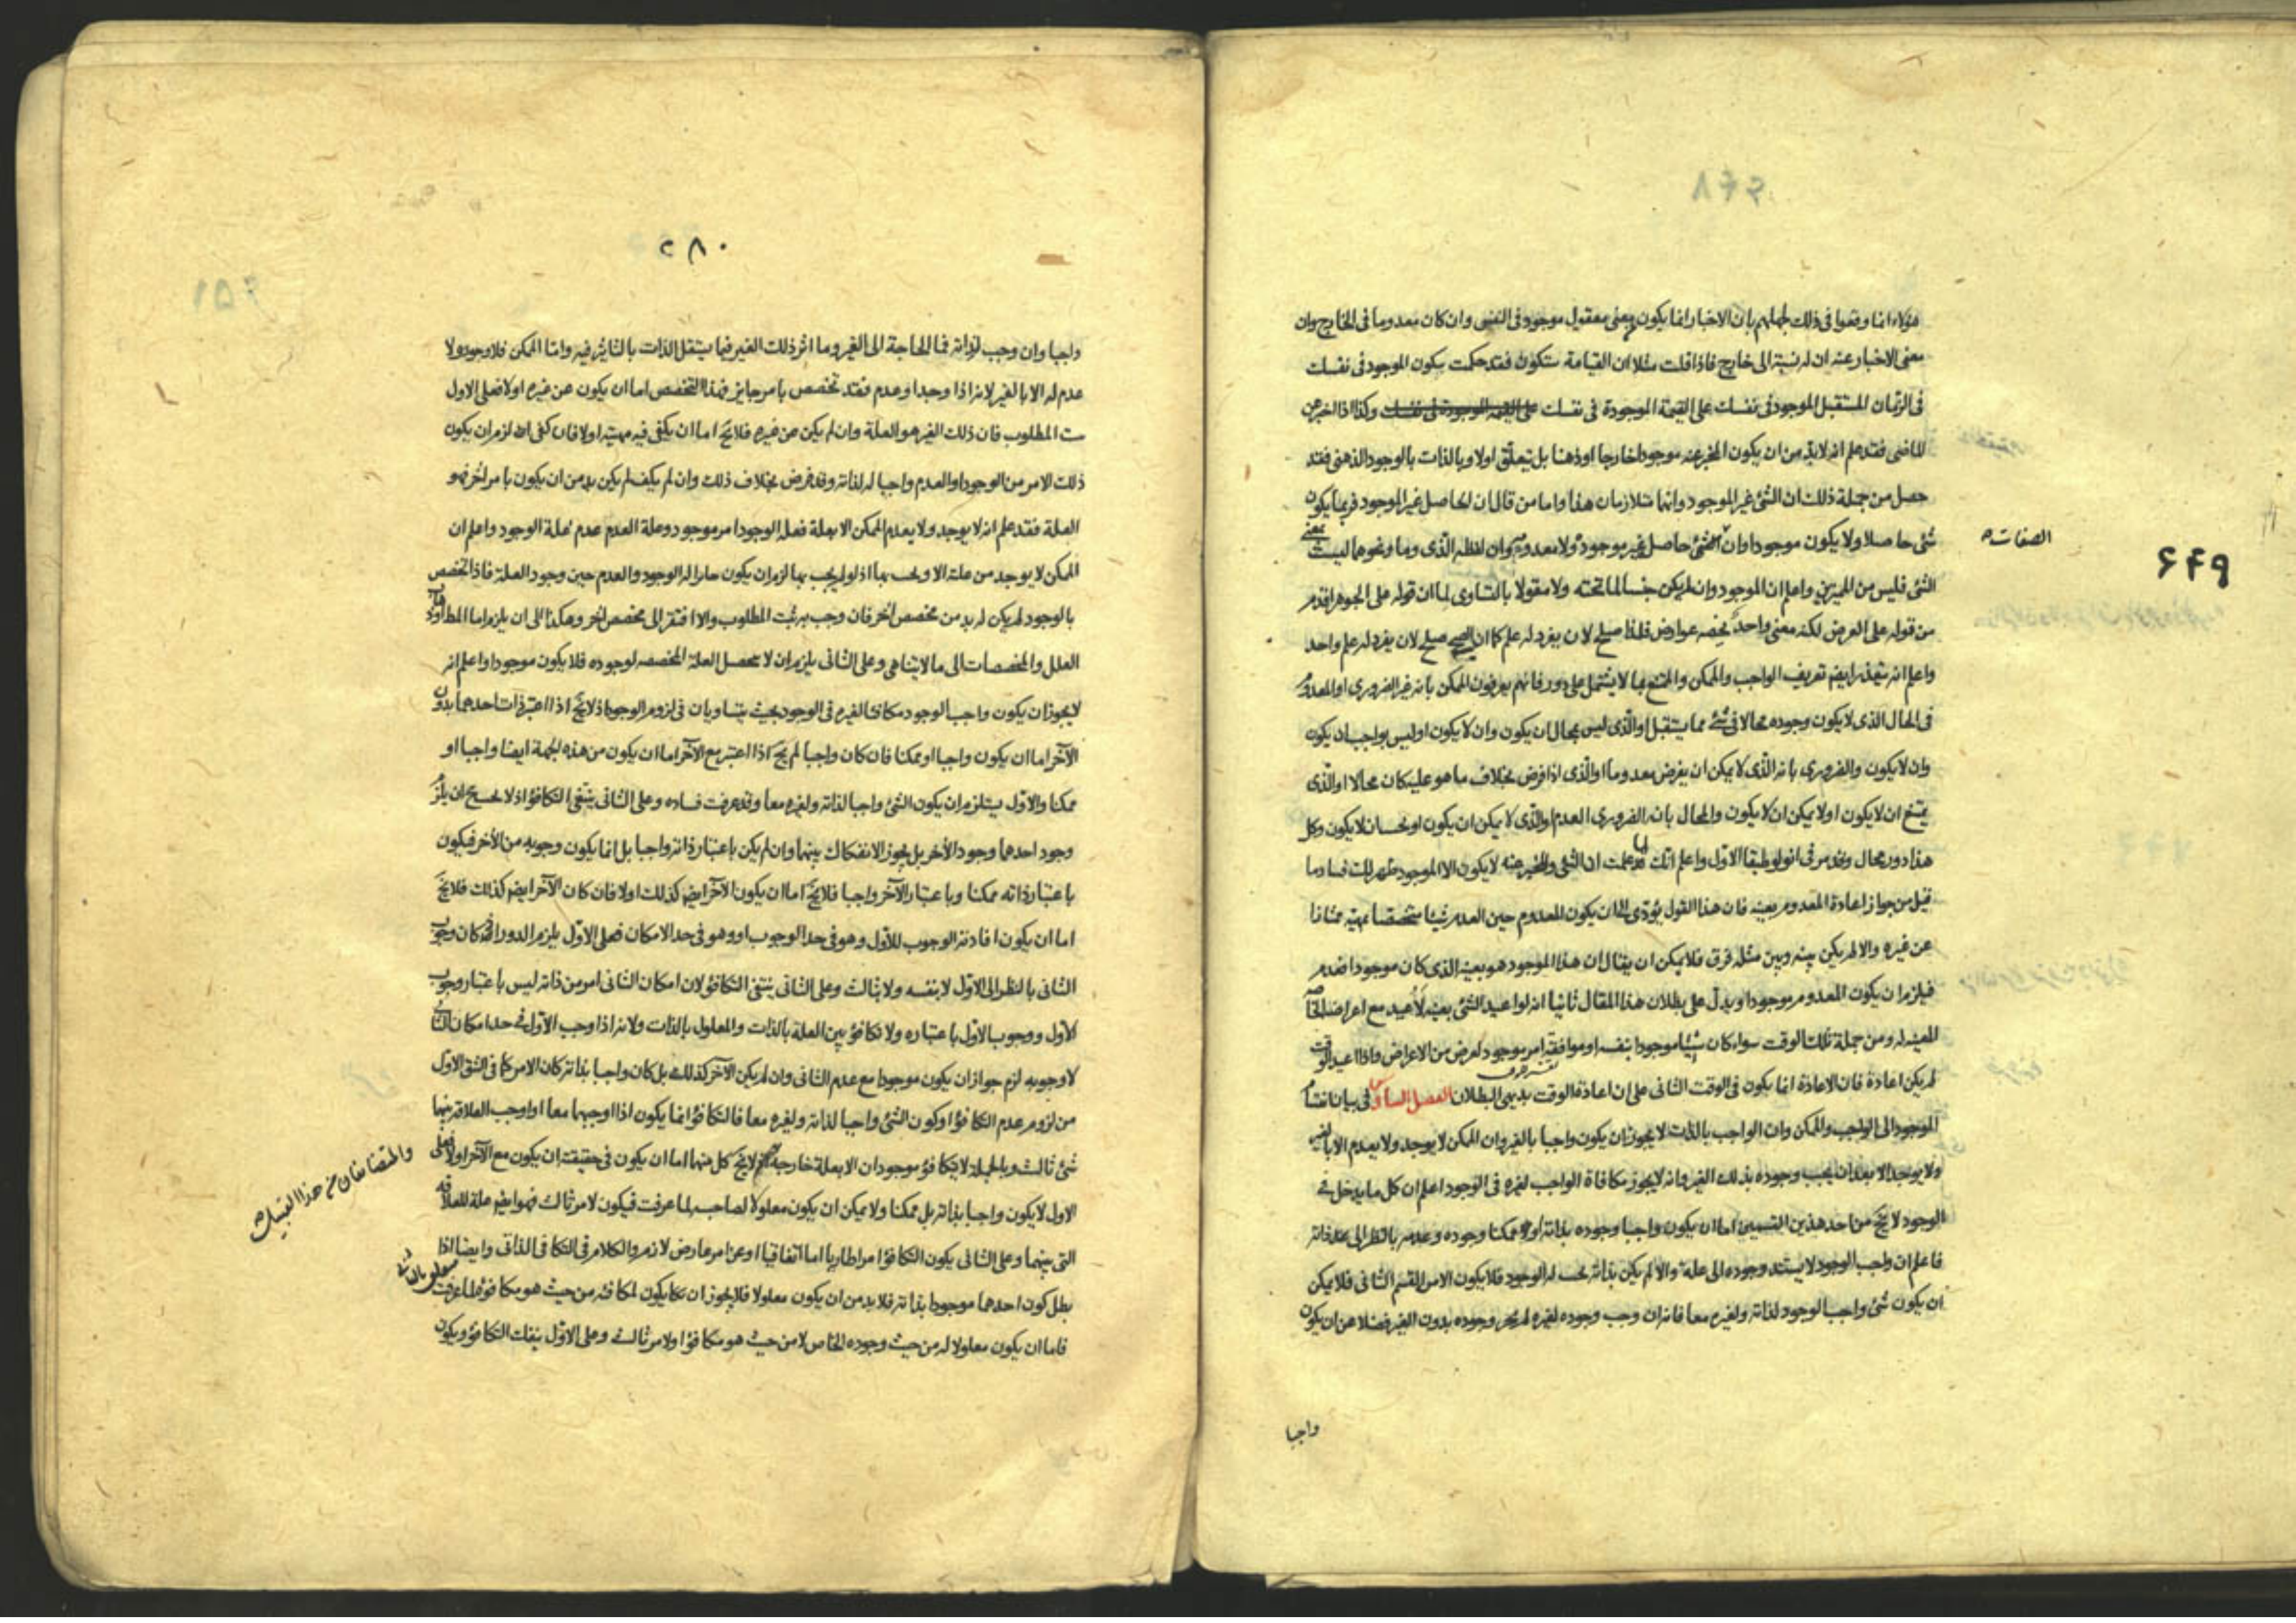 ۶۴۹
هؤلاء انما وقعوا فى ذلك لجهلهم بان الاخبار انما يكون بمعنى معقول موجود فى النفس وان كان معدوما فى الخارج وان
معنى الاخبار عنه ان له نسبة الى خارج فاذا قلت مثلا ان القيامة ستكون فقد حكمت بكون الموجود فى نفسك
فى الزمان المستقبل الموجود فى نفسك على القيمة الموجودة فى نفسك على القيمة الموجودة فى نفسك وكذا اذا اخبر عن
الماضى فقد علم انه لابد من ان يكون المخبر عنه موجودا خارجا او ذهنا بل يتعلق اولا وبالذات بالوجود الذهنى فقد
حصل من جملة ذلك ان الشئ غير الموجود وانهما متلازمان هذا واما من قال ان الحاصل غير الموجود فربما يكون
شئ حاصلا ولا يكون موجودا وان الشئ حاصل غير موجود ولا معدوم وان لفظه الذى وما ونحوهما ليست بمعنى
الصفات
الشئ فليس من المميزين واعلم ان الموجود وان لم يكن جنسا لما تحته ولا مقولا بالتساوى لما ان قوله على الجوهر اقدم
من قوله على العرض لكنه معنى واحد يخصه عوارض فلذا صلح لان يفرد له علم كما ان صلح لان يفرد له علم واحد
واعلم انه يتعذر ايضا تعريف الواجب والممكن والممتنع بما لا يشتمل على دور فانهم يعرفون الممكن بانه غير الضرورى او المعدوم
فى الحال الذى لا يكون وجوده محالا فى شئ مما يستقبل او الذى ليس بمحال ان يكون وان لا يكون او ليس بواجب ان يكون
وان لا يكون والضرورى بانه الذى لا يمكن ان يفرض معدوما او الذى اذا فرض بخلاف ما هو عليه كان محالا او الذى
يمتنع ان لا يكون او لا يمكن ان لا يكون والمحال بانه الضرورى العدم او الذى لا يمكن ان يكون او لا يكون وكل
هذا دور محال وقد مر فى انولوطيقا الاول واعلم انك لما علمت ان الشئ والمخبر عنه لا يكون الا الموجود ظهر لك فساد ما
قيل من جواز اعادة المعدوم بعينه فان هذا القول يؤدى الى ان يكون المعدوم حين العدم شيئا متحققا بمهيته ممتازا
عن غيره والا لم يكن بينه وبين مثله فرق فلا يمكن ان يقال ان هذا الموجود هو بعينه الذى كان موجودا فعدم
فيلزم ان يكون المعدوم موجودا ويدل على بطلان هذا المقال ثانيا انه لو اعيد الشئ بعينه لأعيد مع اعراضه الخاصة
المعينة له ومن جملة تلك الوقت سواء كان شيئا موجودا بنفسه او موافقة امر موجود لعرض من الاعراض واذا اعيد الوقت
لم يكن اعادة فان الاعادة انما يكون فى الوقت الثانى على ان اعادة الوقت بديهى البطلان الفصل السادس فى بيان انقسام
الموجود الى الواجب والممكن وان الواجب بالذات لا يجوز ان يكون واجبا بالغير وان الممكن لا يوجد ولا يعدم الا بالغير
ولا يوجد الا بعد ان يجب وجوده بذلك الغير وانه لا يجوز مكافاة الواجب لغيره فى الوجود اعلم ان كل ما يدخل فى
الوجود لا يخ من احد هذين القسمين اما ان يكون واجبا وجوده بذاته او ممكنا وجوده وعدمه بالنظر الى حد ذاته
فاعلم ان واجب الوجود لا يستند وجوده الى علة والا لم يكن بذاته يجب له الوجود فلا يكون الا من القسم الثانى فلا يمكن
ان يكون شئ واجب الوجود لذاته ولغيره معا فانه ان وجب وجوده لغيره لم يجز وجوده بدون الغير فضلا عن ان يكون
واجبا
۲۸۰
واجبا وان وجب لذاته فما الحاجة الى الغير وما اثر ذلك الغير فيما يستقل الذات بالتاثير فيه واما الممكن فلا وجود ولا
عدم له الا بالغير لانه اذا وجد او عدم فقد تخصص بامر جايز فهذا التخصص اما ان يكون عن غيره او لا فعلى الاول
ثبت المطلوب فان ذلك الغير هو العلة وان لم يكن عن غيره فلا يخ اما ان يكفى فيه مهيته او لا فان كفى لزم ان يكون
ذلك الامر من الوجود او العدم واجبا له لذاته وقد فرض بخلاف ذلك وان لم يكف لم يكن بد من ان يكون بامر اخر فهو
العلة فقد علم انه لا يوجد ولا يعدم الممكن الا بعلة فعلة الوجود امر موجود وعلة العدم عدم علة الوجود واعلم ان
الممكن لا يوجد من علة الا ويجب بها اذ لو لم يجب بها لزم ان يكون جايزا له الوجود والعدم حين وجود العلة فاذا تخصص
بالوجود لم يكن له بد من مخصص اخر فان وجب به ثبت المطلوب والا افتقر الى مخصص اخر وهكذا الى ان يلزم اما المط او ذهاب
العلل والمخصصات الى ما لا يتناهى وعلى الثانى يلزم ان لا تحصل العلة المخصصه لوجوده فلا يكون موجودا واعلم انه
لا يجوز ان يكون واجب الوجود مكافئا لغيره فى الوجود بحيث يتساويان فى لزوم الوجود اذ لا يخ اذا اعتبر ذات احدهما بدون
الآخر اما ان يكون واجبا او ممكنا فان كان واجبا لم يخ اذا اعتبر مع الآخر اما ان يكون من هذه الجهة ايضا واجبا او
ممكنا والاول يستلزم ان يكون الشئ واجبا لذاته ولغيره معا وقد عرفت فساده وعلى الثانى ينتفى التكافؤ اذ لا يلزم
وجود احدهما وجود الآخر بل يجوز الانفكاك بينهما وان لم يكن باعتبار ذاته واجبا بل انما يكون وجوبه من الآخر فيكون
باعتبار ذاته ممكنا وباعتبار الآخر واجبا فلا يخ اما ان يكون الآخر ايضا كذلك او لا فان كان الآخر ايضا كذلك فلا يخ
اما ان يكون افادته الوجوب للاول وهو فى حد الوجوب او وهو فى حد الامكان فعلى الاول يلزم الدور اذ كان وجوب
الثانى بالنظر الى الاول لا بنفسه ولا بثالث وعلى الثانى ينتفى التكافؤ لان امكان الثانى امر من ذاته ليس باعتبار وجوب
الاول ووجوب الاول باعتباره ولا تكافؤ بين العلة بالذات والمعلول بالذات ولانه اذا وجب الاول فى حد امكان الثانى
لا وجوبه لزم جواز ان يكون موجودا مع عدم الثانى وان لم يكن الآخر كذلك بل كان واجبا بذاته كان الامر كما فى الشق الاول
من لزوم عدم التكافؤ او كون الشئ واجبا لذاته ولغيره معا فالتكافؤ انما يكون اذا اوجبهما معا او اوجب العلاقة بينهما
شئ ثالث وبالجملة لا يتكافؤ موجودان الا بعلة خارجة لا يخ كل منهما اما ان يكون فى حقيقته ان يكون مع الآخر او لا فعلى
والمتضايفان من هذا القبيل
الاول لا يكون واجبا بذاته بل ممكنا ولا يمكن ان يكون معلولا لصاحبه لما عرفت فيكون لامر ثالث فهو ايضا علة للعلاقة
التى بينهما وعلى الثانى يكون التكافؤ امرا طاريا اما اتفاقيا او عن امر عارض لازم والكلام فى التكافى الذاتى وايضا اذا
بطل كون احدهما موجودا بذاته فلا بد من ان يكون معلولا فلا يجوز ان يكون لمكافئه من حيث هو مكافؤ لما عرفت
فاما ان يكون معلولا له من حيث وجوده الخاص لا من حيث هو مكافؤ او لامر ثالث وعلى الاول ينفك التكافؤ ويكون